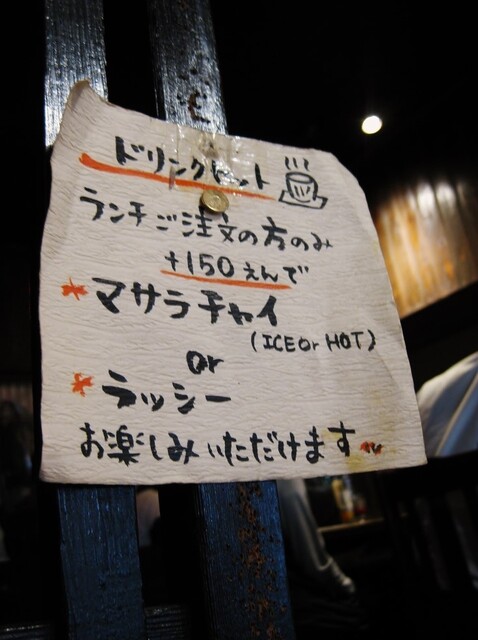 ドリンクセット
ランチご注文の方のみ
+150えんで
* マサラチャイ
(ICE or HOT)
or
* ラッシー
お楽しみいただけます〜